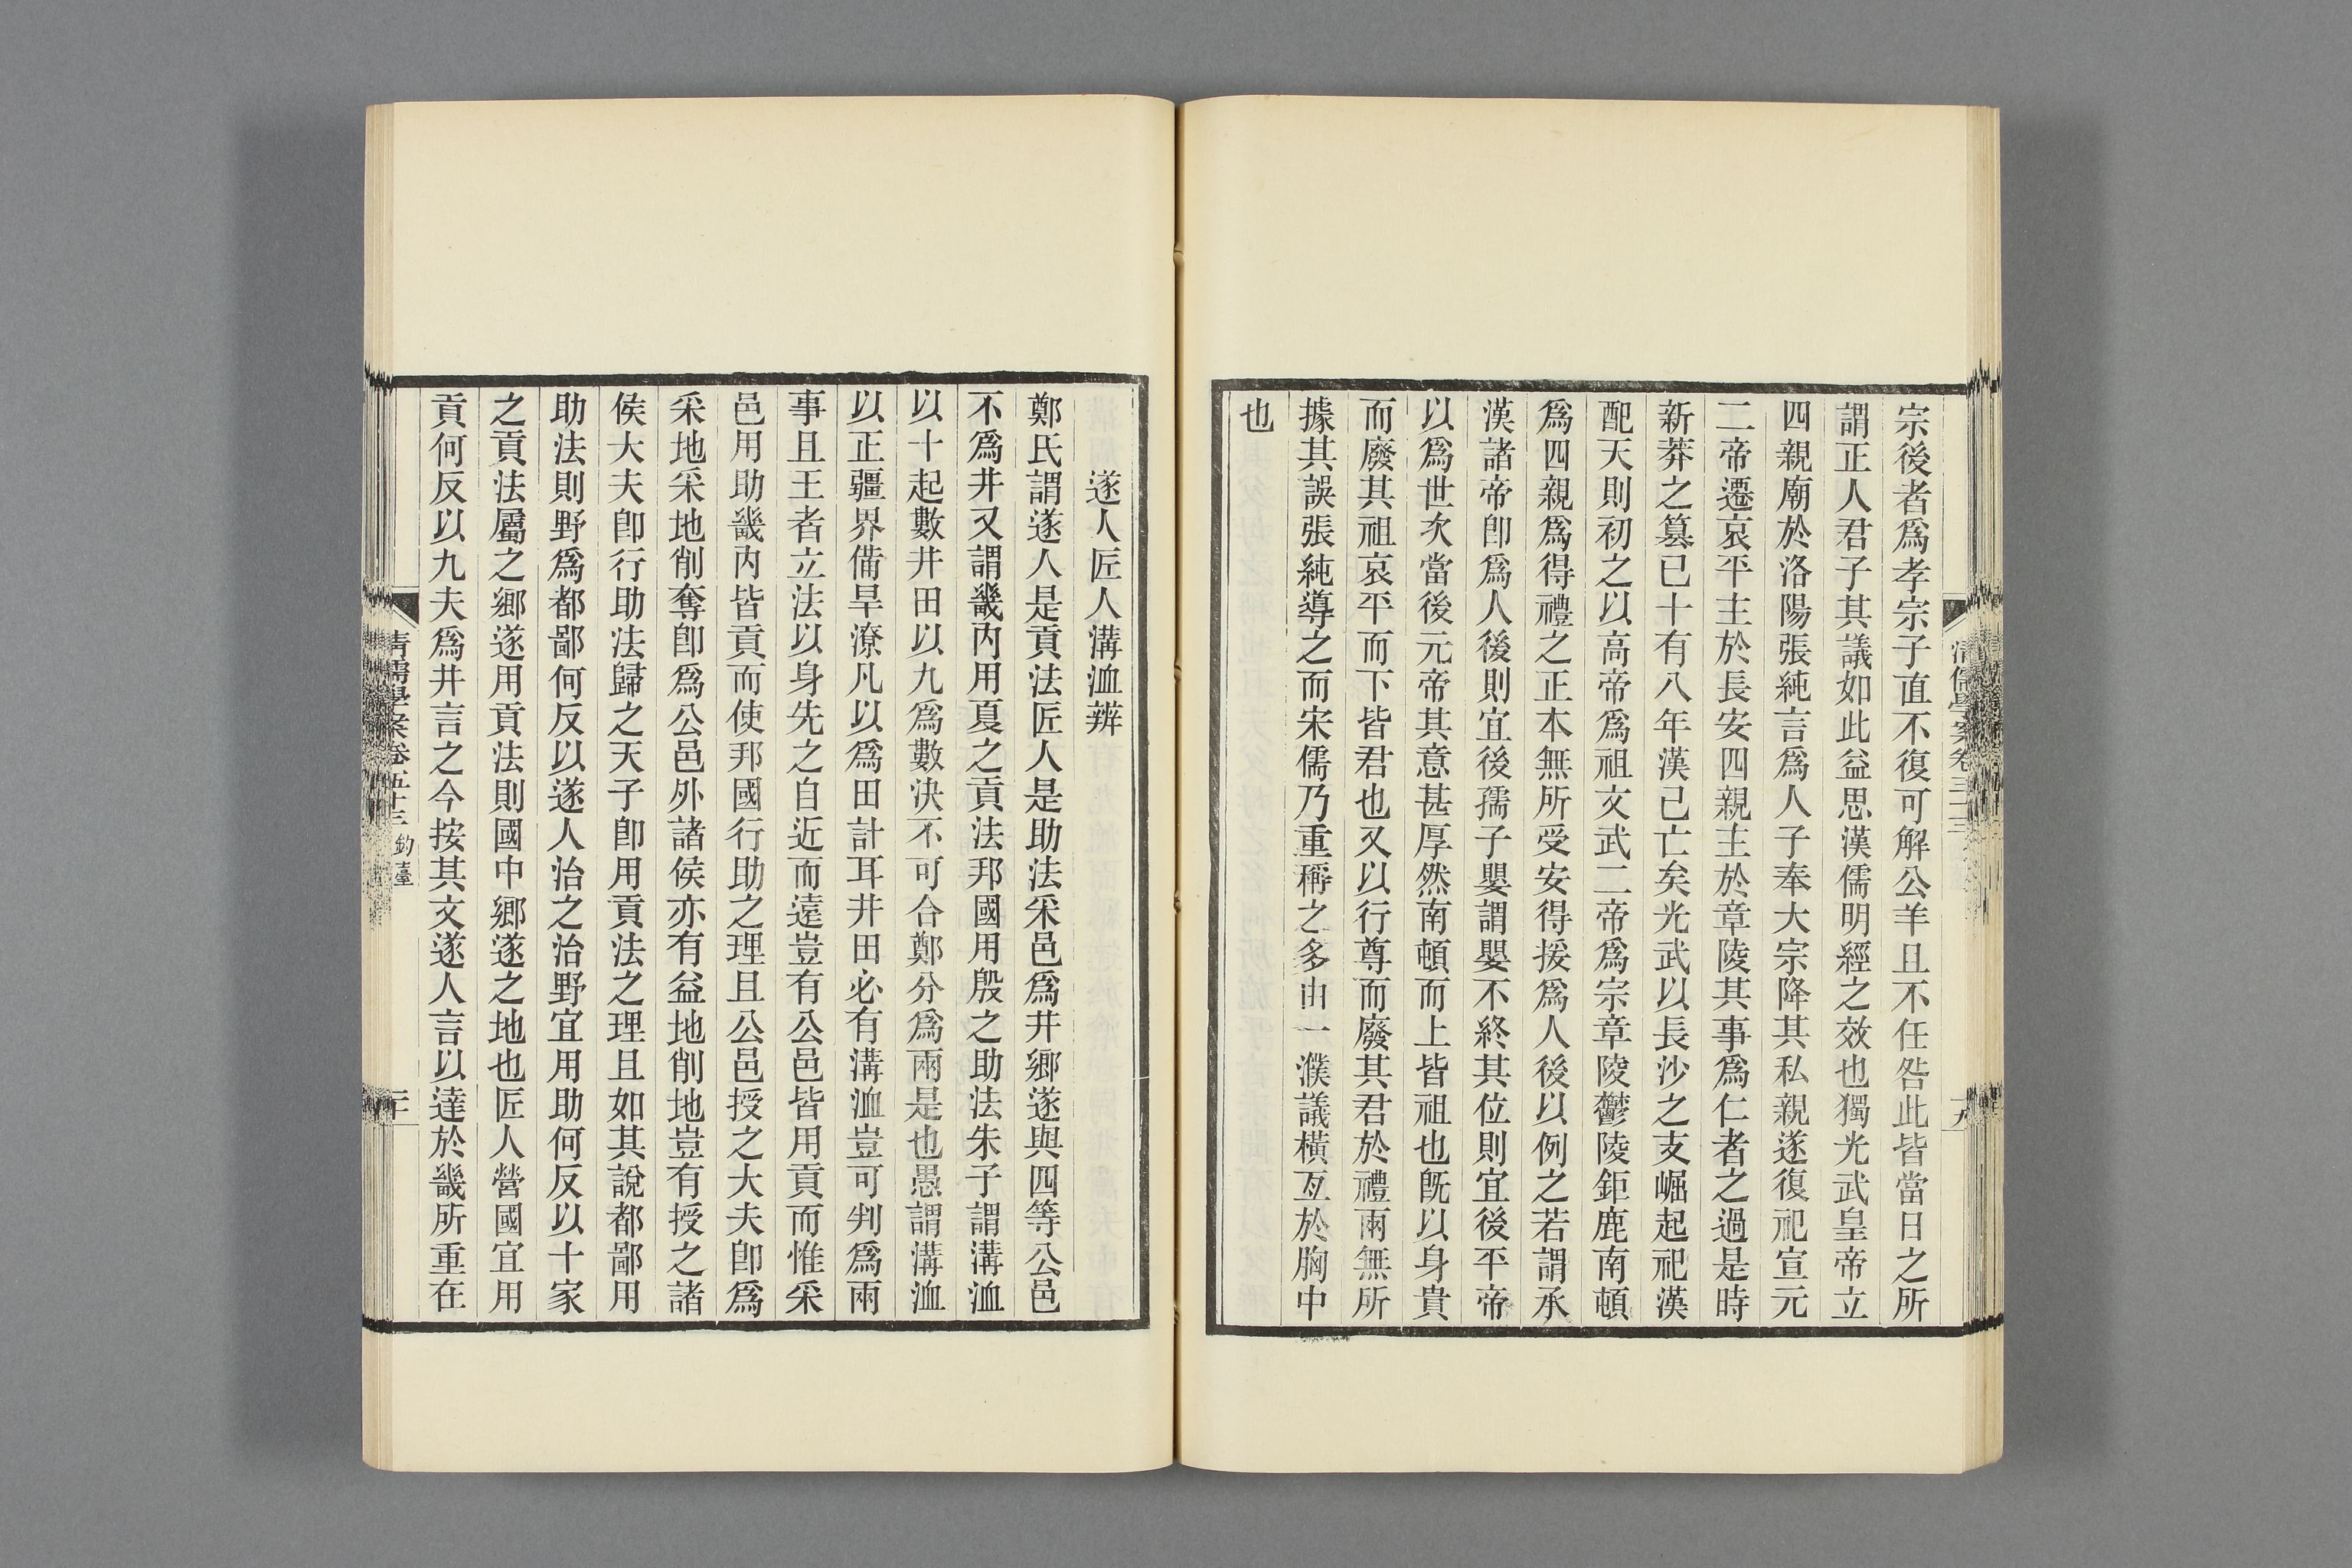 宗後者爲孝宗子直不復可解公羊且不任咎此皆當日之所
謂正人君子其議如此益思漢儒明經之效也獨光武皇帝立
四親廟於洛陽張純言爲人子奉大宗降其私親遂復祀宣元
二帝遷哀平主於長安四親主於章陵其事爲仁者之過是時
新莽之篡已十有八年漢已亡矣光武以長沙之支崛起祀漢
配天則初之以高帝爲祖文武二帝爲宗章陵鬱陵鉅鹿南頓
爲四親爲得禮之正本無所受安得援爲人後以例之若謂承
漢諸帝卽爲人後則宜後孺子嬰謂嬰不終其位則宜後平帝
以爲世次當後元帝其意甚厚然南頓而上皆祖也旣以身貴
而廢其祖哀平而下皆君也又以行尊而廢其君於禮兩無所
據其誤張純導之而宋儒乃重稱之多由一濮議橫亙於胸中
也
遂人匠人溝洫辨
鄭氏謂遂人是貢法匠人是助法采邑爲井鄉遂與四等公邑
不爲井又謂畿內用夏之貢法邦國用殷之助法朱子謂溝洫
以十起數井田以九爲數決不可合鄭分爲兩是也愚謂溝洫
以正疆界備旱潦凡以爲田計耳井田必有溝洫豈可判爲兩
事且王者立法以身先之自近而遠豈有公邑皆用貢而惟采
邑用助畿內皆貢而使邦國行助之理且公邑授之大夫卽爲
采地采地削奪卽爲公邑外諸侯亦有益地削地豈有授之諸
侯大夫卽行助法歸之天子卽用貢法之理且如其說都鄙用
助法則野爲都鄙何反以遂人治之治野宜用助何反以十家
之貢法屬之鄉遂用貢法則國中鄉遂之地也匠人營國宜用
貢何反以九夫爲井言之今按其文遂人言以達於畿所重在
清儒學案卷五十三 鈞臺